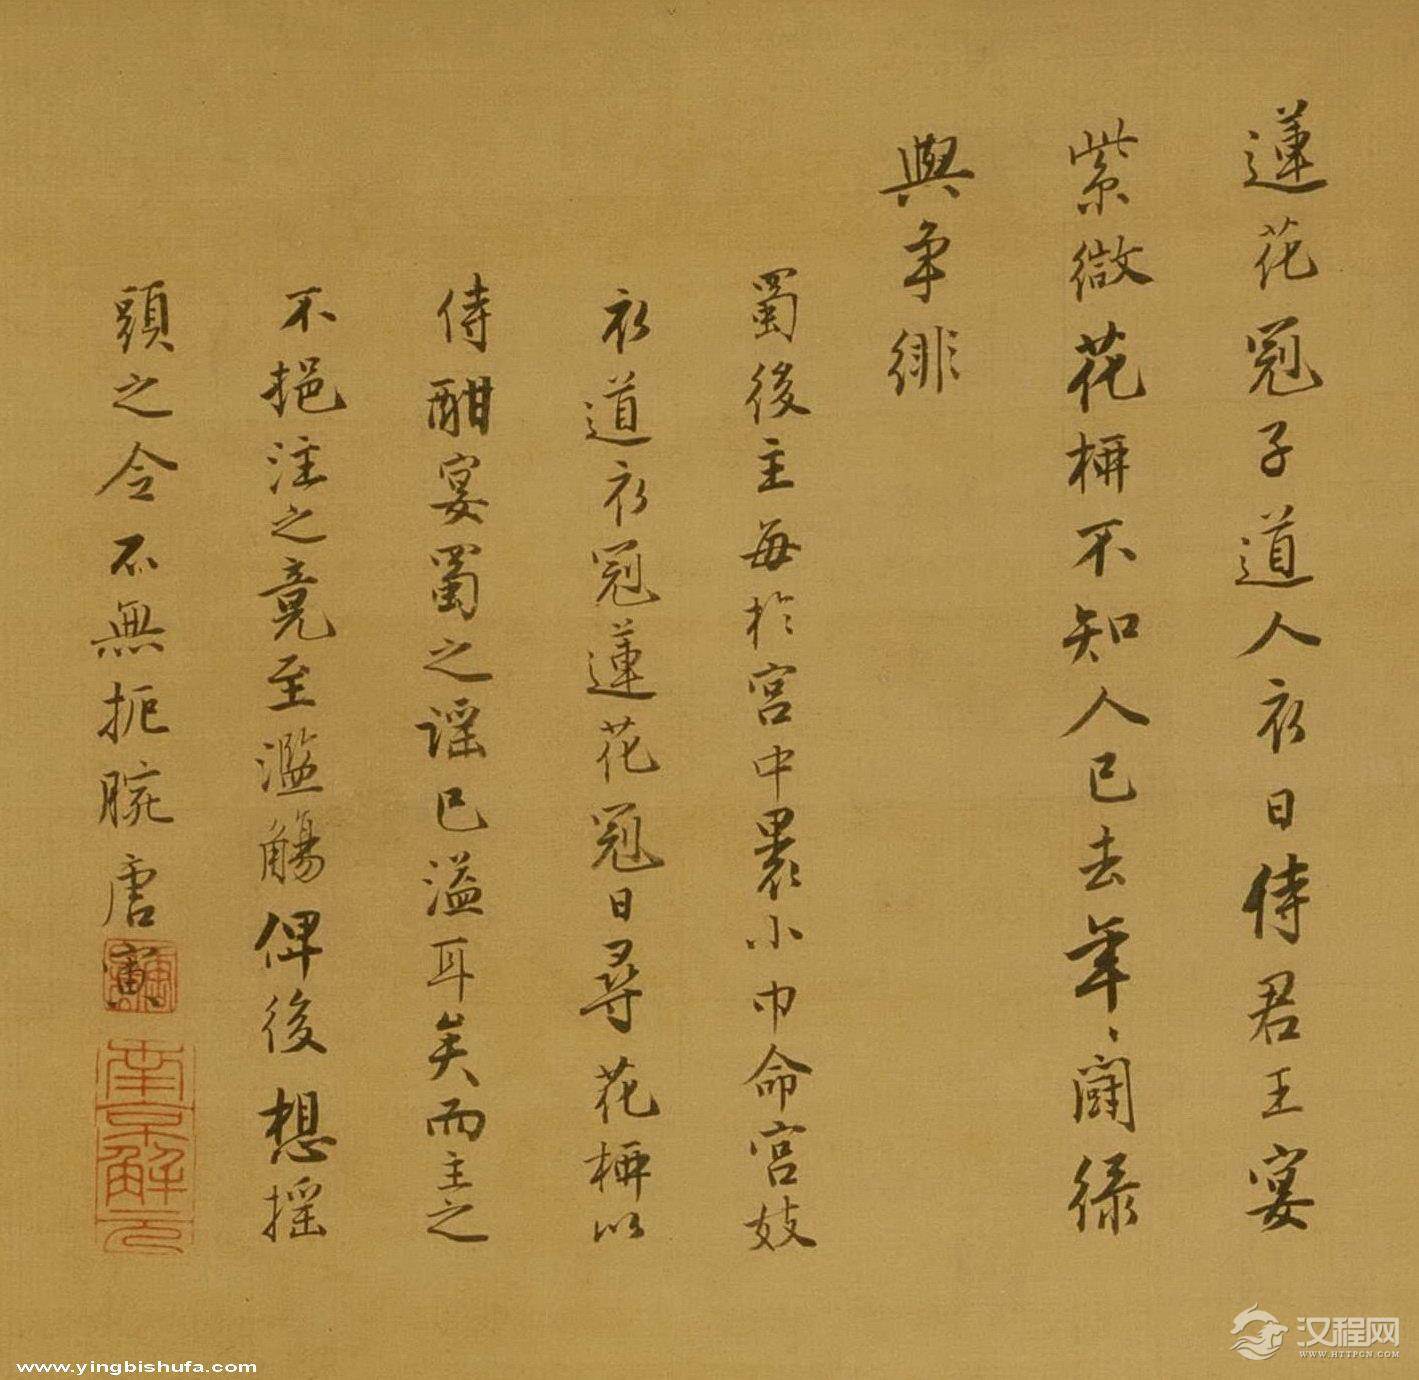 蓮花冠子道人衣日侍君王宴
紫微花柳不知人已去年、鬪綠
與爭緋
蜀後主每於宮中裹小巾命宮妓
衣道衣冠蓮花冠日尋花柳以
侍酣宴蜀之謠已溢耳矣而主之
不挹注之竟至濫觴俾後想搖
頭之令不無扼腕唐寅
南京解元
www.yingbishufa.com
汉程网
WWW.HTTPCN.COM